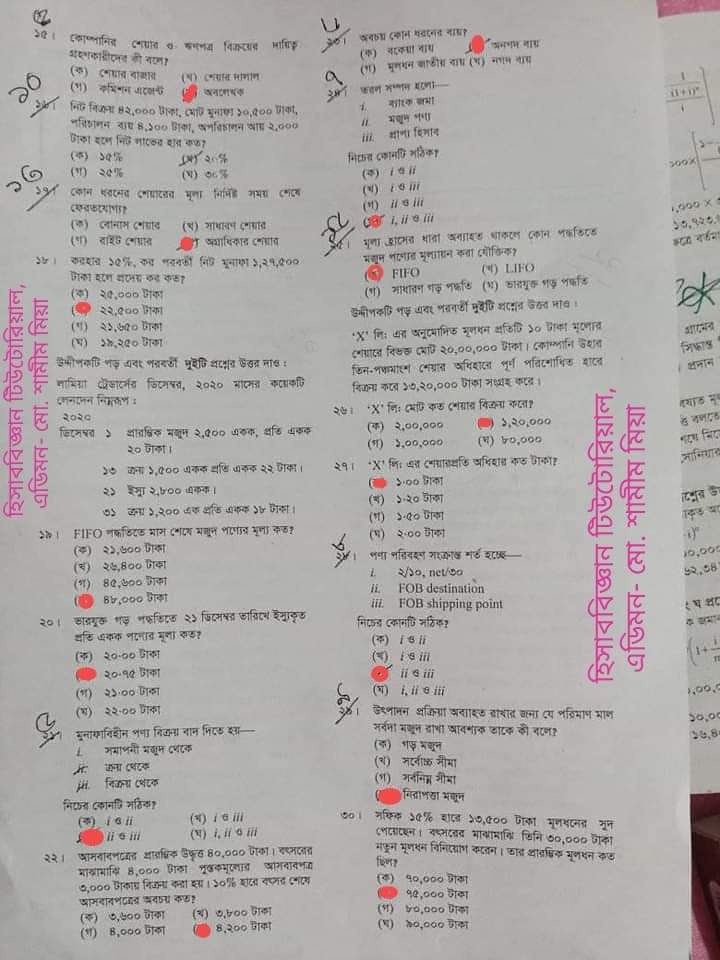 ১৫। কোম্পানির শেয়ার ও ঋণপত্র বিক্রয়ের দায়িত্ব
গ্রহণকারীদের কী বলে?
(ক) শেয়ার বাজার (খ) শেয়ার দালাল
(গ) কমিশন এজেন্ট অবলেখক
১০
১৬। নিট বিক্রয় ৪২,০০০ টাকা, মোট মুনাফা ১০,৫০০ টাকা,
পরিচালন ব্যয় ৪,১০০ টাকা, অপরিচালন আয় ২,০০০
টাকা হলে নিট লাভের হার কত?
(ক) ১৫% (খ) ২০%
(গ) ২৫% (ঘ) ৩০%
১৭। কোন ধরনের শেয়ারের মূল্য নির্দিষ্ট সময় শেষে
ফেরতযোগ্য?
(ক) বোনাস শেয়ার (খ) সাধারণ শেয়ার
(গ) রাইট শেয়ার অগ্রাধিকার শেয়ার
১৮। করহার ১৫%, কর পরবর্তী নিট মুনাফা ১,২৭,৫০০
টাকা হলে প্রদেয় কর কত?
(ক) ২৫,০০০ টাকা
২২,৫০০ টাকা
(গ) ২১,৬৫০ টাকা
(ঘ) ১৯,২৫০ টাকা
উদ্দীপকটি পড় এবং পরবর্তী দুইটি প্রশ্নের উত্তর দাও :
লামিয়া ট্রেডার্সের ডিসেম্বর, ২০২০ মাসের কয়েকটি
লেনদেন নিম্নরূপ :
২০২০
ডিসেম্বর ১ প্রারম্ভিক মজুদ ২,৫০০ একক, প্রতি একক
২০ টাকা।
১৩ ক্রয় ১,৫০০ একক প্রতি একক ২২ টাকা।
২১ ইস্যু ২,৮০০ একক।
৩১ ক্রয় ১,২০০ এক প্রতি একক ১৮ টাকা।
১৯। FIFO পদ্ধতিতে মাস শেষে মজুদ পণ্যের মূল্য কত?
(ক) ২১,৬০০ টাকা
(খ) ২৬,৪০০ টাকা
(গ) ৪৫,৬০০ টাকা
৪৮,০০০ টাকা
২০। ভারযুক্ত গড় পদ্ধতিতে ২১ ডিসেম্বর তারিখে ইস্যুকৃত
প্রতি একক পণ্যের মূল্য কত?
(ক) ২০·০০ টাকা
২০·৭৫ টাকা
(গ) ২১·০০ টাকা
(ঘ) ২২·০০ টাকা
২১। মুনাফাবিহীন পণ্য বিক্রয় বাদ দিতে হয়—
i. সমাপনী মজুদ থেকে
ii. ক্রয় থেকে
iii. বিক্রয় থেকে
নিচের কোনটি সঠিক?
(ক) i ও ii (খ) i ও iii
ii ও iii (ঘ) i, ii ও iii
২২। আসবাবপত্রের প্রারম্ভিক উদ্বৃত্ত ৪০,০০০ টাকা। বৎসরের
মাঝামাঝি ৪,০০০ টাকা পুস্তকমূল্যের আসবাবপত্র
৩,০০০ টাকায় বিক্রয় করা হয়। ১০% হারে বৎসর শেষে
আসবাবপত্রের অবচয় কত?
(ক) ৩,৬০০ টাকা (খ) ৩,৮০০ টাকা
(গ) ৪,০০০ টাকা ৪,২০০ টাকা
২৩। অবচয় কোন ধরনের ব্যয়?
(ক) বকেয়া ব্যয় অনগদ ব্যয়
(গ) মূলধন জাতীয় ব্যয় (ঘ) নগদ ব্যয়
২৪। তরল সম্পদ হলো—
i. ব্যাংক জমা
ii. মজুদ পণ্য
iii. প্রাপ্য হিসাব
নিচের কোনটি সঠিক?
(ক) i ও ii
(খ) i ও iii
(গ) ii ও iii
i, ii ও iii
২৫। মূল্য হ্রাসের ধারা অব্যাহত থাকলে কোন পদ্ধতিতে
মজুদ পণ্যের মূল্যায়ন করা যৌক্তিক?
FIFO (খ) LIFO
(গ) সাধারণ গড় পদ্ধতি (ঘ) ভারযুক্ত গড় পদ্ধতি
উদ্দীপকটি পড় এবং পরবর্তী দুইটি প্রশ্নের উত্তর দাও :
'X' লি: এর অনুমোদিত মূলধন প্রতিটি ১০ টাকা মূল্যের
শেয়ারে বিভক্ত মোট ২০,০০,০০০ টাকা। কোম্পানি উহার
তিন-পঞ্চমাংশ শেয়ার অধিহারে পূর্ণ পরিশোধিত হারে
বিক্রয় করে ১৩,২০,০০০ টাকা সংগ্রহ করে।
২৬। 'X' লি: মোট কত শেয়ার বিক্রয় করে?
(ক) ২,০০,০০০ ১,২০,০০০
(গ) ১,০০,০০০ (ঘ) ৮০,০০০
২৭। 'X' লি: এর শেয়ারপ্রতি অধিহার কত টাকা?
১·০০ টাকা
(খ) ১·২০ টাকা
(গ) ১·৫০ টাকা
(ঘ) ২·০০ টাকা
২৮। পণ্য পরিবহণ সংক্রান্ত শর্ত হচ্ছে—
i. ২/১০, net/৩০
ii. FOB destination
iii. FOB shipping point
নিচের কোনটি সঠিক?
(ক) i ও ii
(খ) i ও iii
ii ও iii
(ঘ) i, ii ও iii
২৯। উৎপাদন প্রক্রিয়া অব্যাহত রাখার জন্য যে পরিমাণ মাল
সর্বদা মজুদ রাখা আবশ্যক তাকে কী বলে?
(ক) গড় মজুদ
(খ) সর্বোচ্চ সীমা
(গ) সর্বনিম্ন সীমা
নিরাপত্তা মজুদ
৩০। সফিক ১৫% হারে ১৩,৫০০ টাকা মূলধনের সুদ
পেয়েছেন। বৎসরের মাঝামাঝি তিনি ৩০,০০০ টাকা
নতুন মূলধন বিনিয়োগ করেন। তার প্রারম্ভিক মূলধন কত
ছিল?
(ক) ৭০,০০০ টাকা
৭৫,০০০ টাকা
(গ) ৮০,০০০ টাকা
(ঘ) ৯০,০০০ টাকা
হিসাববিজ্ঞান টিউটোরিয়াল,
এডিমন- মো. শামীম মিয়া
হিসাববিজ্ঞান টিউটোরিয়াল,
এডিমন- মো. শামীম মিয়া